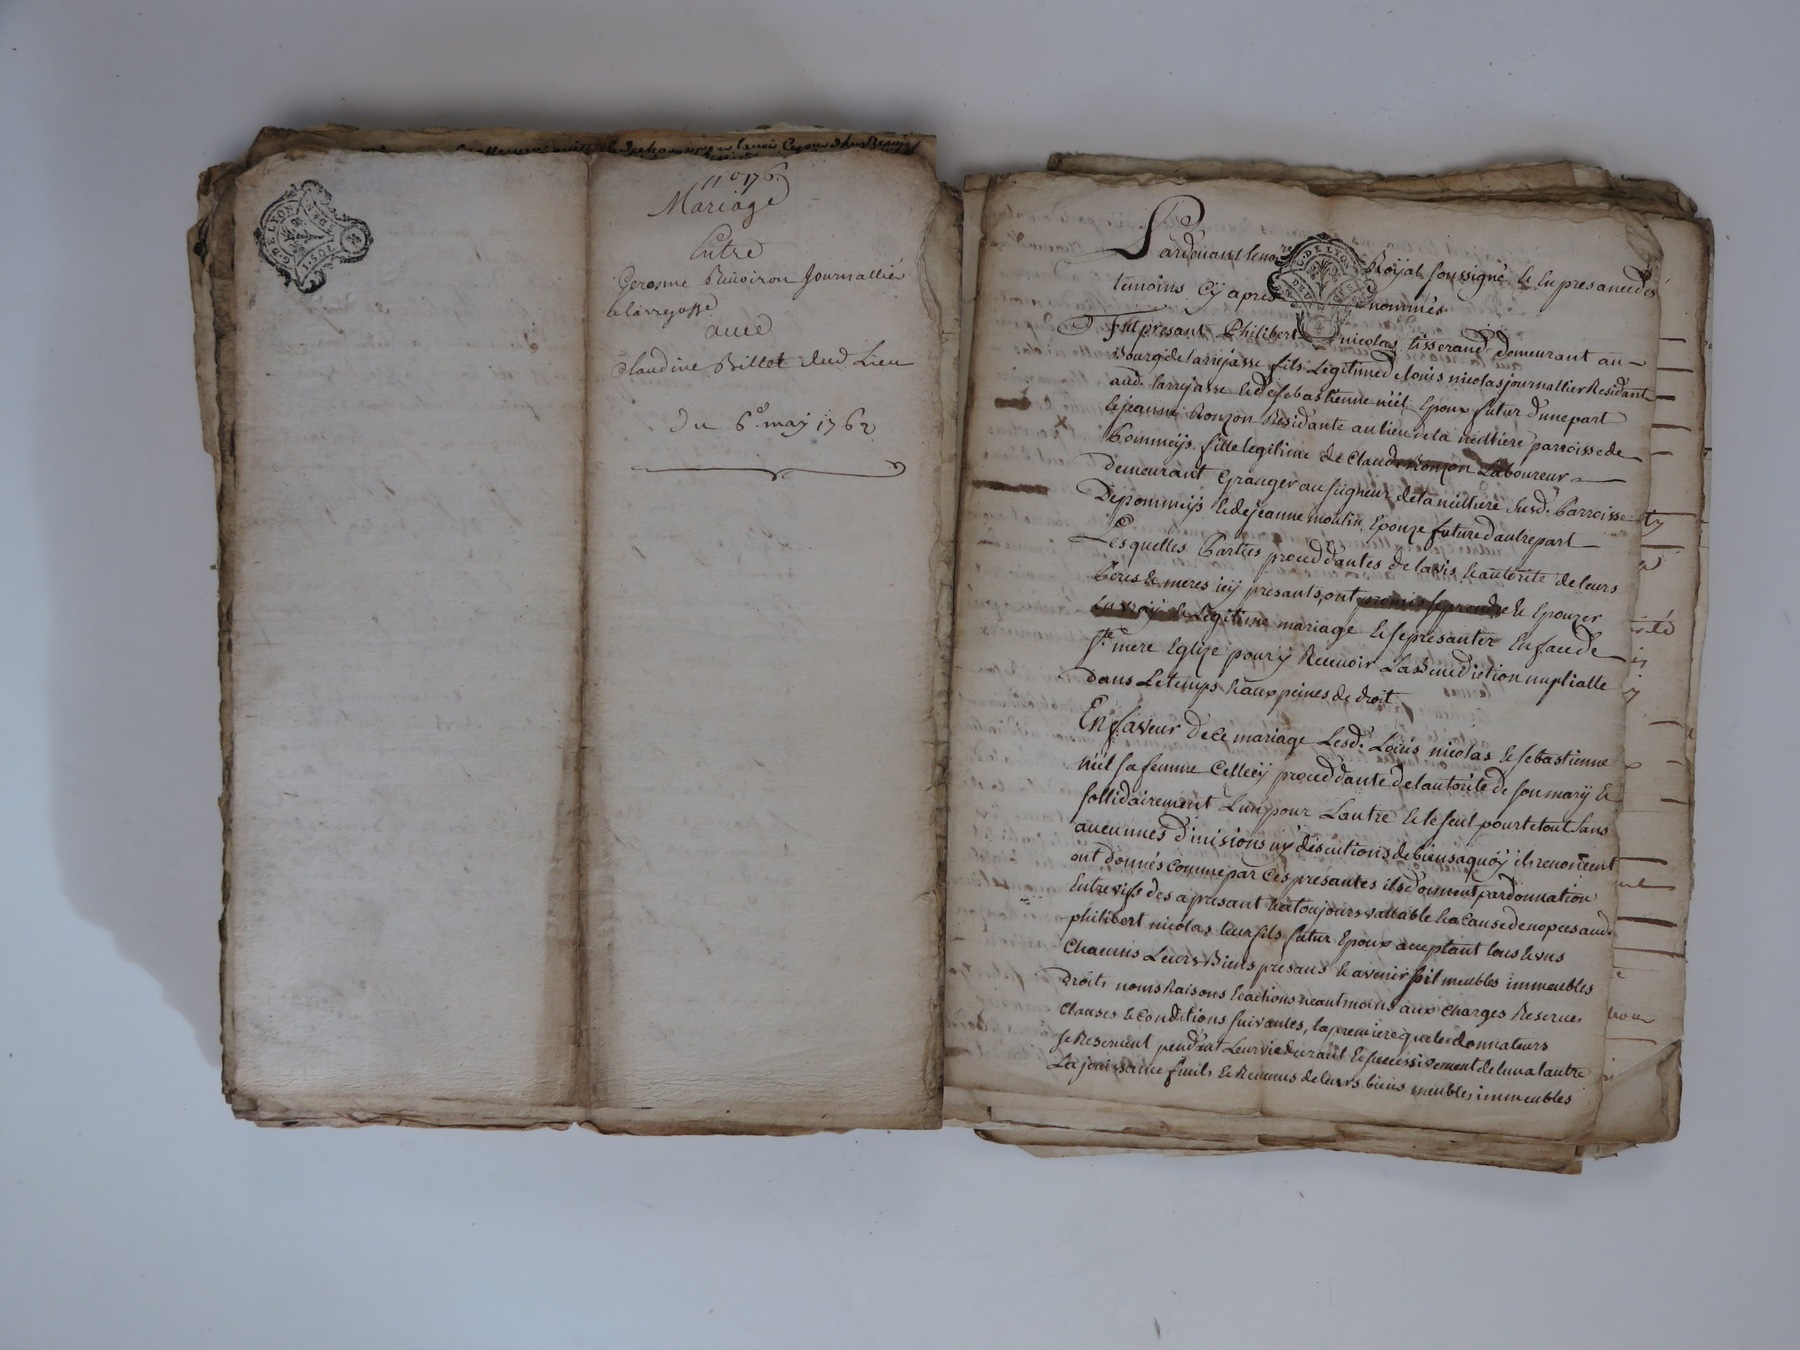 G. DE LYON
Mariage
Entre
Gerosme Buiviron Journallier
a larrejasse
avec
Claudine Billot dud. Lieu
du 6e. may 1762
G. DE LYON
Pardevant le no.re Royal soussigné & En presance des
temoins Cy apres nommés
Fut presant Philibert nicolas tisserand demeurant au
Bourg de larrejasse fils Legitime de Loüis nicolas journallier Residant
aud. larrejasse & de sebastienne nüel Epoux futur d'une part
& jeanne Ronzon Residante au lieu de la parroisse de
Pommeÿs fille legitime de Claude Ronzon Laboureur
demeurant Granger au seigneur de la susd. Parroisse
De pommeÿs & de jeanne moulin Epouze future d'autre part
Lesquelles Parties proceddantes de l'avis & autorité de leurs
Peres & meres icy presants, ont promis se prendre & Epouzer
En vraÿ & Legitime mariage & se presanter En face de
S.te mere Eglize pour ÿ Recevoir La Benediction nuptialle
dans Le temps & aux peines de droit
En faveur de ce mariage Lesd. Loüis nicolas & sebastienne
nüel sa femme Celle cÿ proceddante de l'autorité de son marÿ &
sollidairement L'un pour L'autre & le seul pour le tout sans
aucunnes divisions nÿ discutions de biens a quoÿ ils renoncent
ont donnés comme par Ces presantes ils donnent par donnation
Entre vifs des a presant & a toujours vallable & a cause de nopces aud.
philibert nicolas leur fils futur Epoux acceptant tous & uns
Chacuns Leurs Biens presans & avenir soit meubles immeubles
droits noms Raisons & actions neantmoins aux Charges Reserves
Clauses & conditions suivantes, la premiere que les donnateurs
se Reservent pendant Leur vie durant & successivement de l'un a l'autre
La joüissance fruits & Revenus de leurs biens meubles immeubles